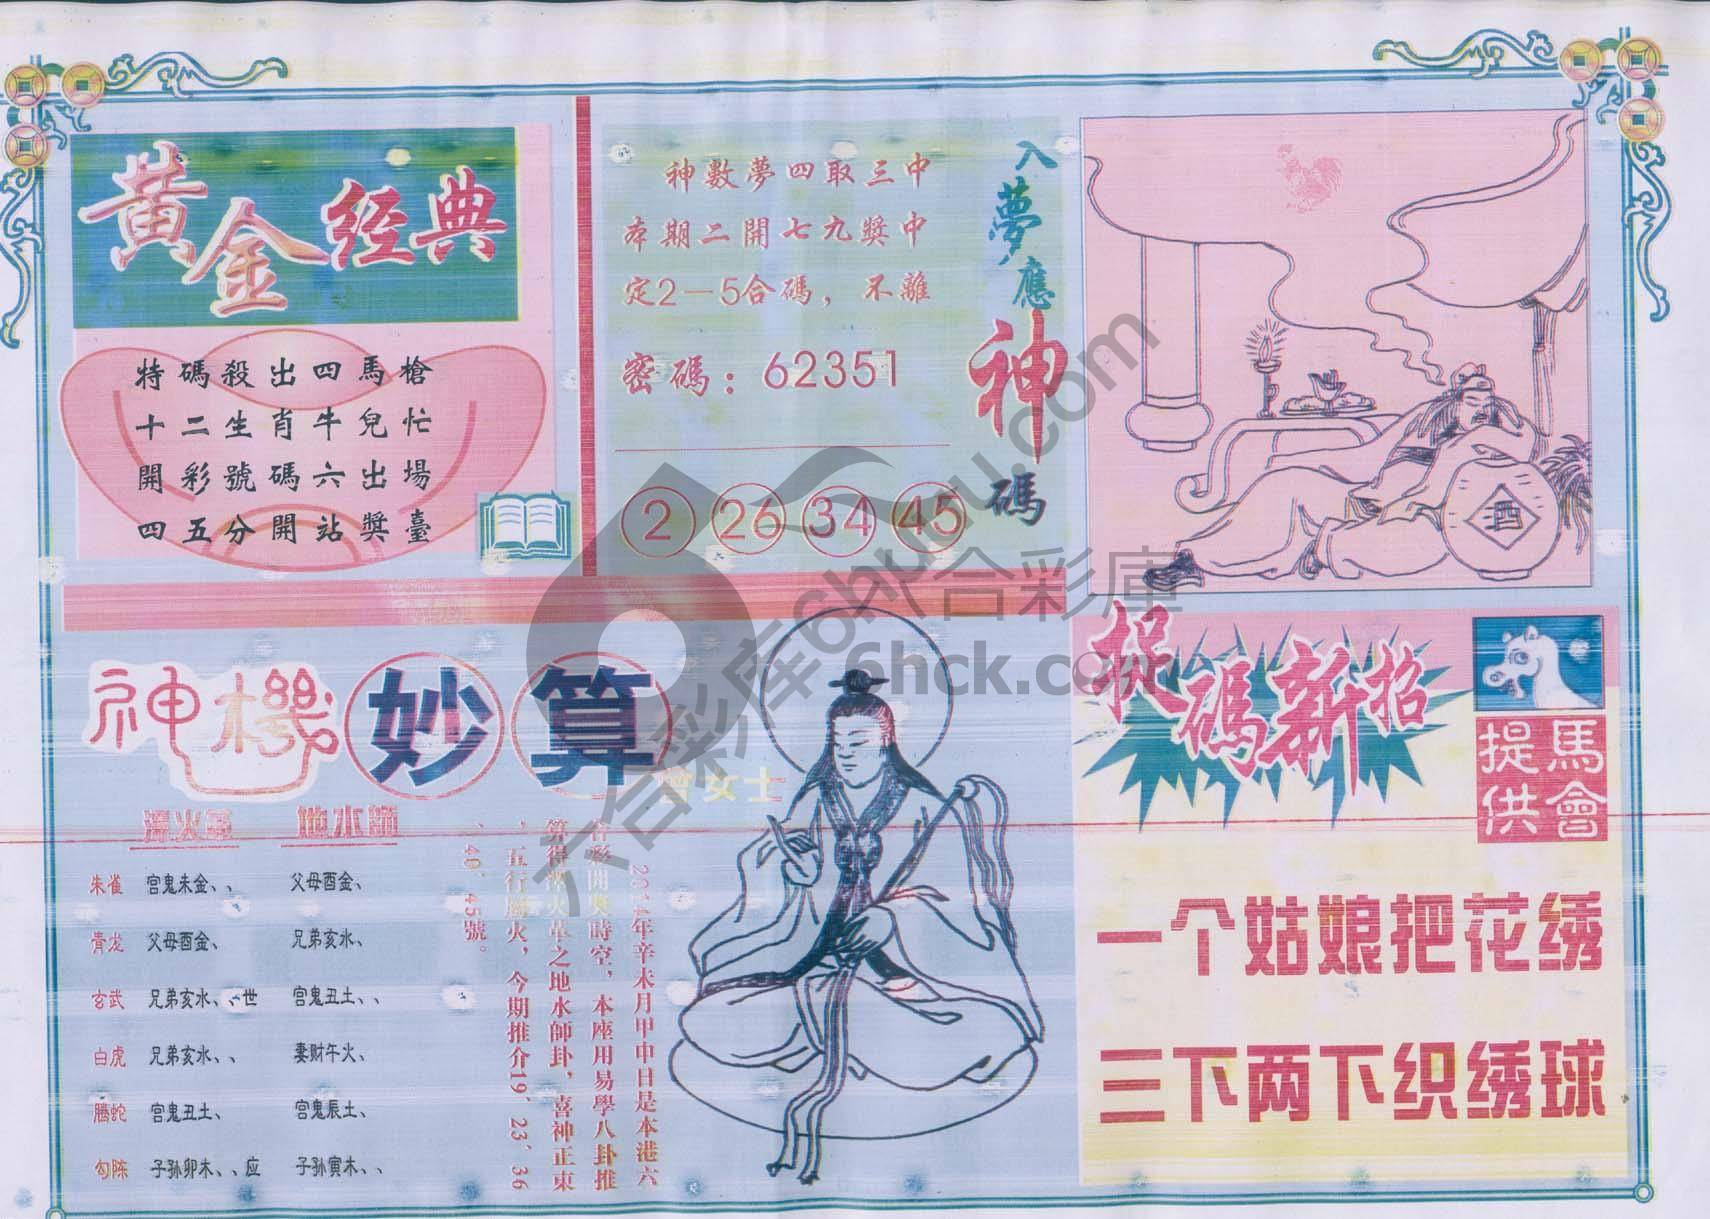 黄金经典
特碼殺出四馬槍
十二生肖牛兒忙
開彩號碼六出場
四五分開站獎臺
入夢應神碼
神數夢四取三中
本期二開七九獎中
定2—5合碼，不離
密碼：62351
2 26 34 45
酒
神機妙算
曾女士
地水師
朱雀 官鬼未金、、 父母酉金、
青龙 父母酉金、 兄弟亥水、
玄武 兄弟亥水、、世 官鬼丑土、、
白虎 兄弟亥水、、 妻财午火、
腾蛇 官鬼丑土、 官鬼辰土、
勾陈 子孙卯木、、应 子孙寅木、、
2014年辛未月甲申日是本港六
合彩開獎時空，本座用易學八卦推
算得澤火革之地水師卦，喜神正東
，五行屬火，今期推介19、23、36
、40、45號。
捉碼新招
馬會
提供
一个姑娘把花绣
三下两下织绣球
六合彩库6hhu.com
六合彩庫
6hck.com